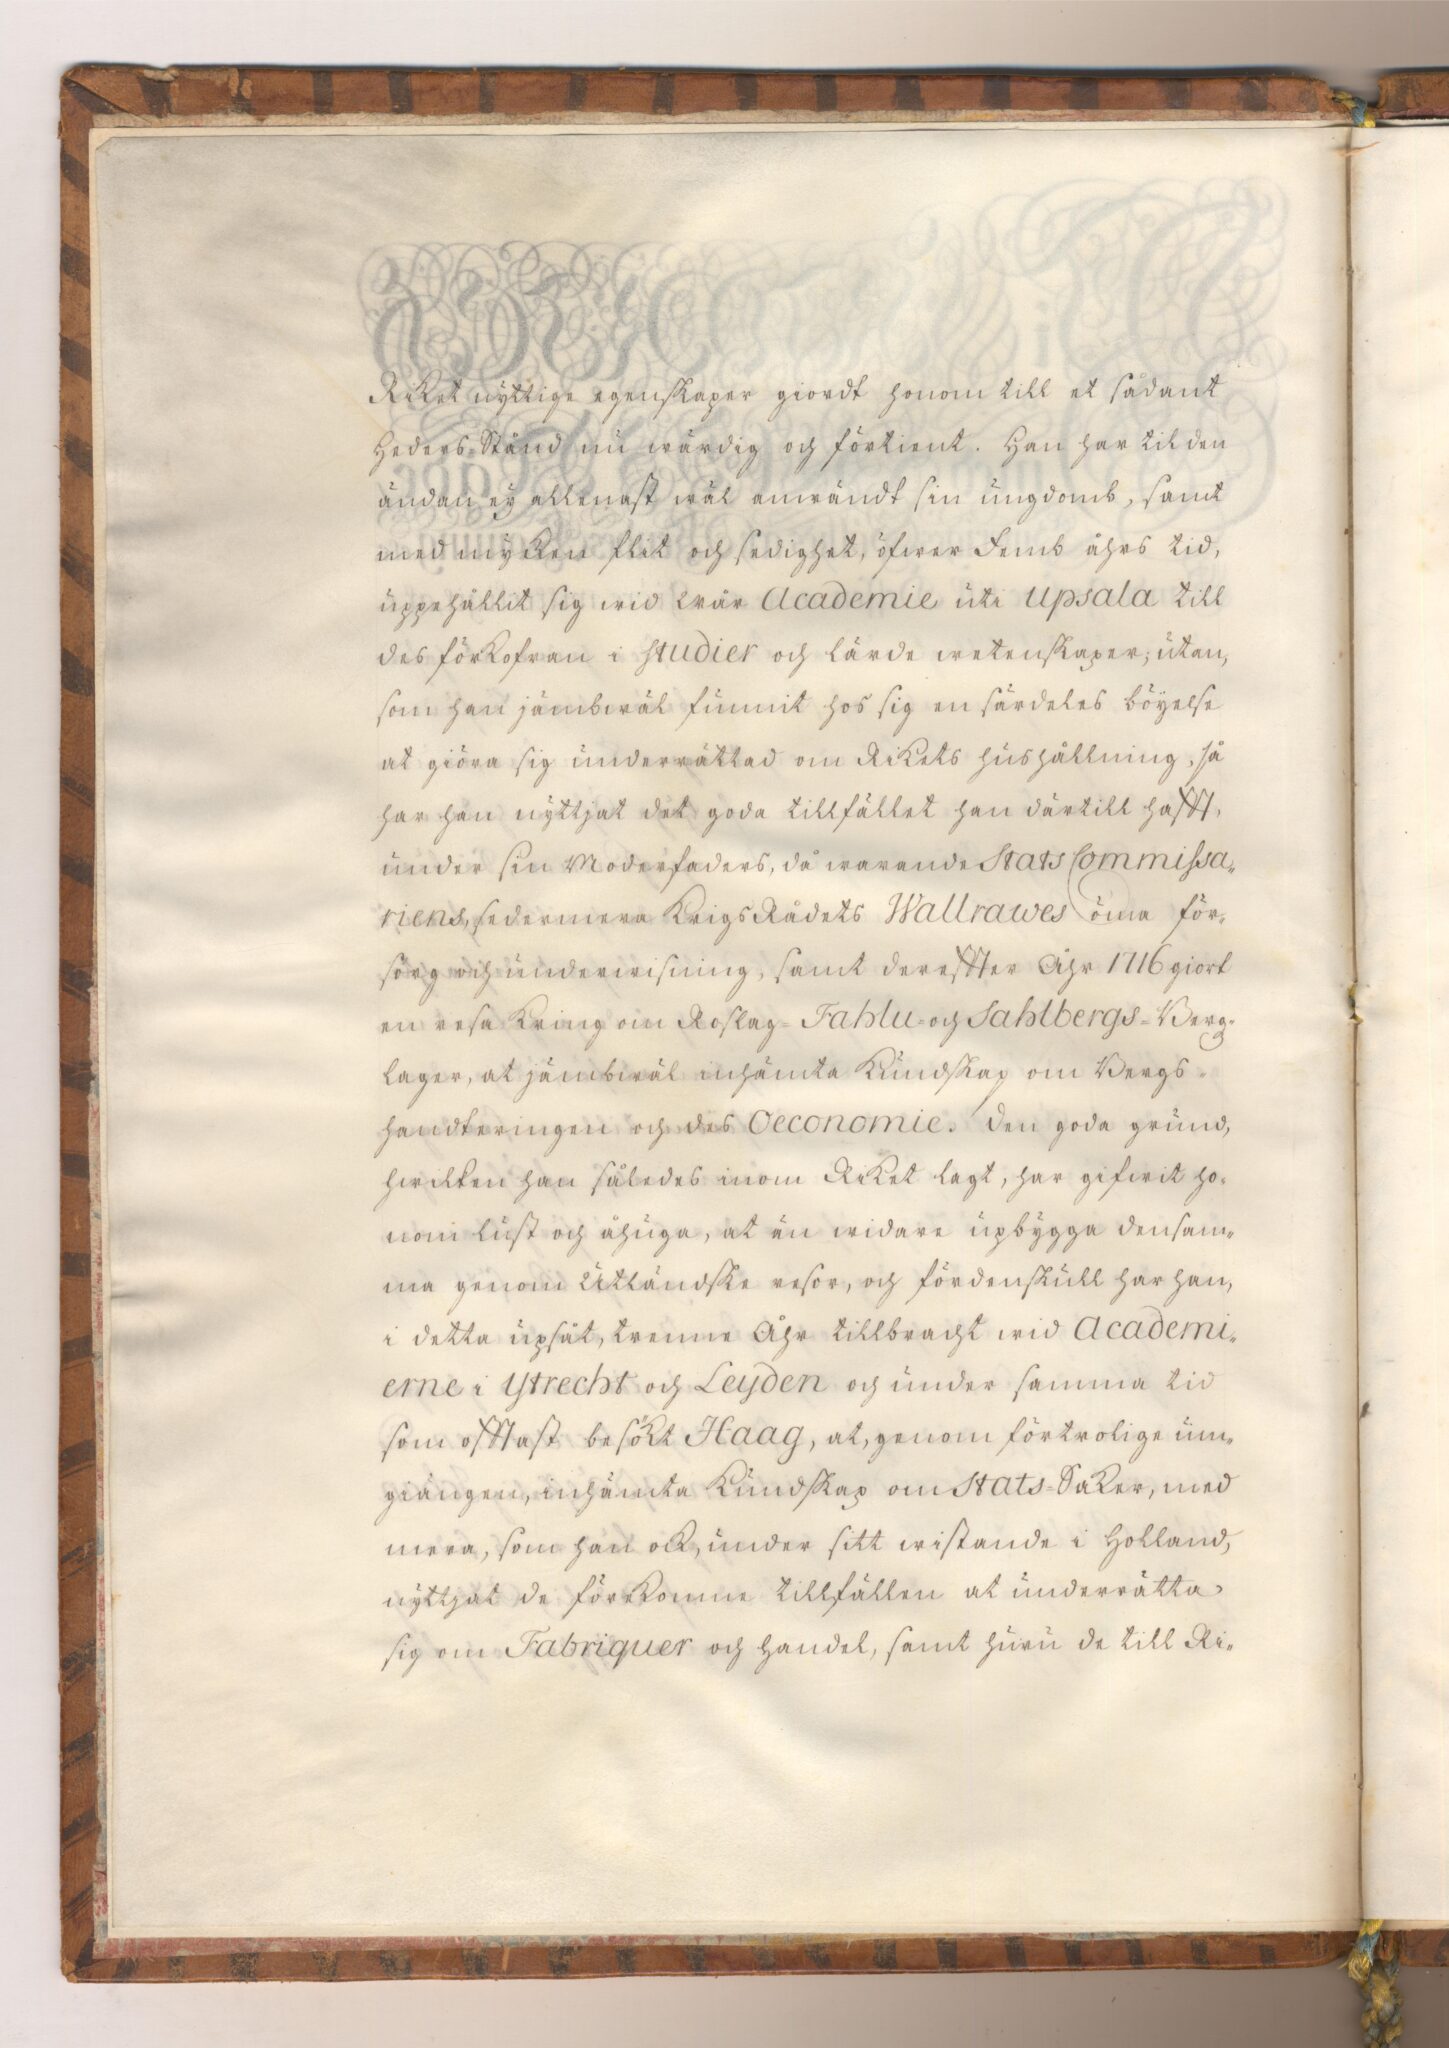 Riket nyttige egenskaper giordt honom till et sådant
Heders-Stånd nu wärdig och förtient. Han har til den
ändan ey allenast wäl anwändt sin ungdomb, samt
med mycken flit och sedighet, öfwer Femb åhrs tid,
uppehållit sig wid wår Academie uti Upsala till
des förkofran i studier och lärde wetenskaper; utan,
som han jämbwäl funnit hos sig en särdeles böyelse
at giöra sig underrättad om Rikets hushållning, så
har han nyttjat det goda tillfället han därtill hafft,
under sin Moderfaders, då warande Stats Commissa-
riens, sedermera Krigs Rådets Wallrawes öma för-
sorg och underwisning, samt dereffter Åhr 1716 giort
en resa kring om Roslag- Fahlu- och Sahlbergs- Berg-
lager, at jämbwäl inhämta Kundskap om Bergs-
handteringen och des Oeconomie. Den goda grund,
hwilken han således inom Riket lagt, har gifwit ho-
nom lust och åhuga, at än widare upbygga densam-
ma genom Utländske resor, och fördenskull har han,
i detta upsåt, trenne Åhr tillbracht wid Academi-
erne i Ytrecht och Leyden och under samma tid
som offtast besökt Haag, at, genom förtrolige um-
giängen, inhämta Kundskap om Stats-Saker, med
mera, som han ock, under sitt wistande i Holland,
nyttjat de förekomne tillfällen at underrätta
sig om Fabriquer och Handel, samt huru de till Ri-